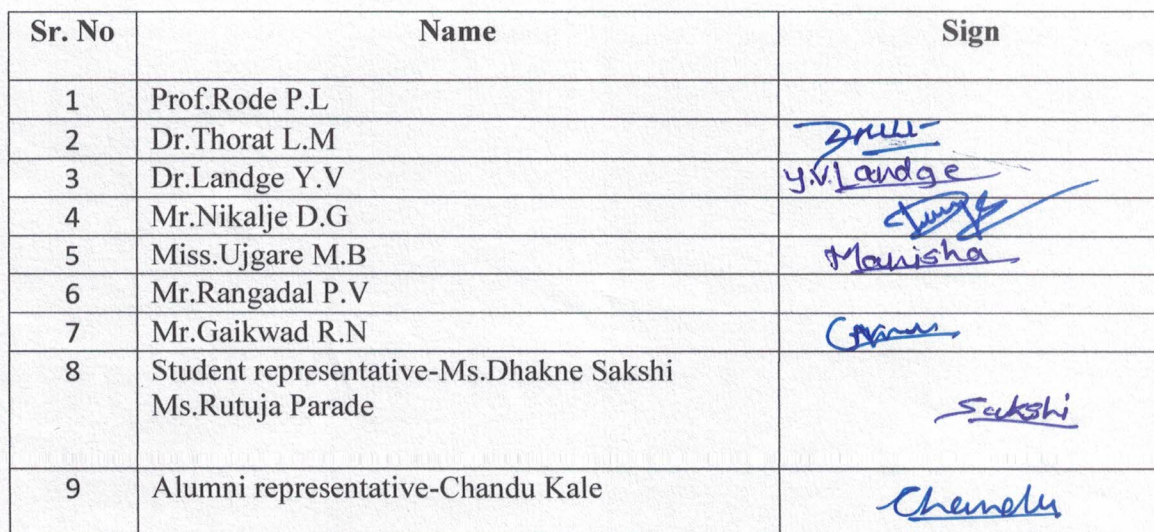 Sr. No Name Sign
1 Prof.Rode P.L
2 Dr.Thorat L.M
3 Dr.Landge Y.V Y.V.Landge
4 Mr.Nikalje D.G
5 Miss.Ujgare M.B Manisha
6 Mr.Rangadal P.V
7 Mr.Gaikwad R.N
8 Student representative-Ms.Dhakne Sakshi
Ms.Rutuja Parade Sakshi
9 Alumni representative-Chandu Kale Chandu